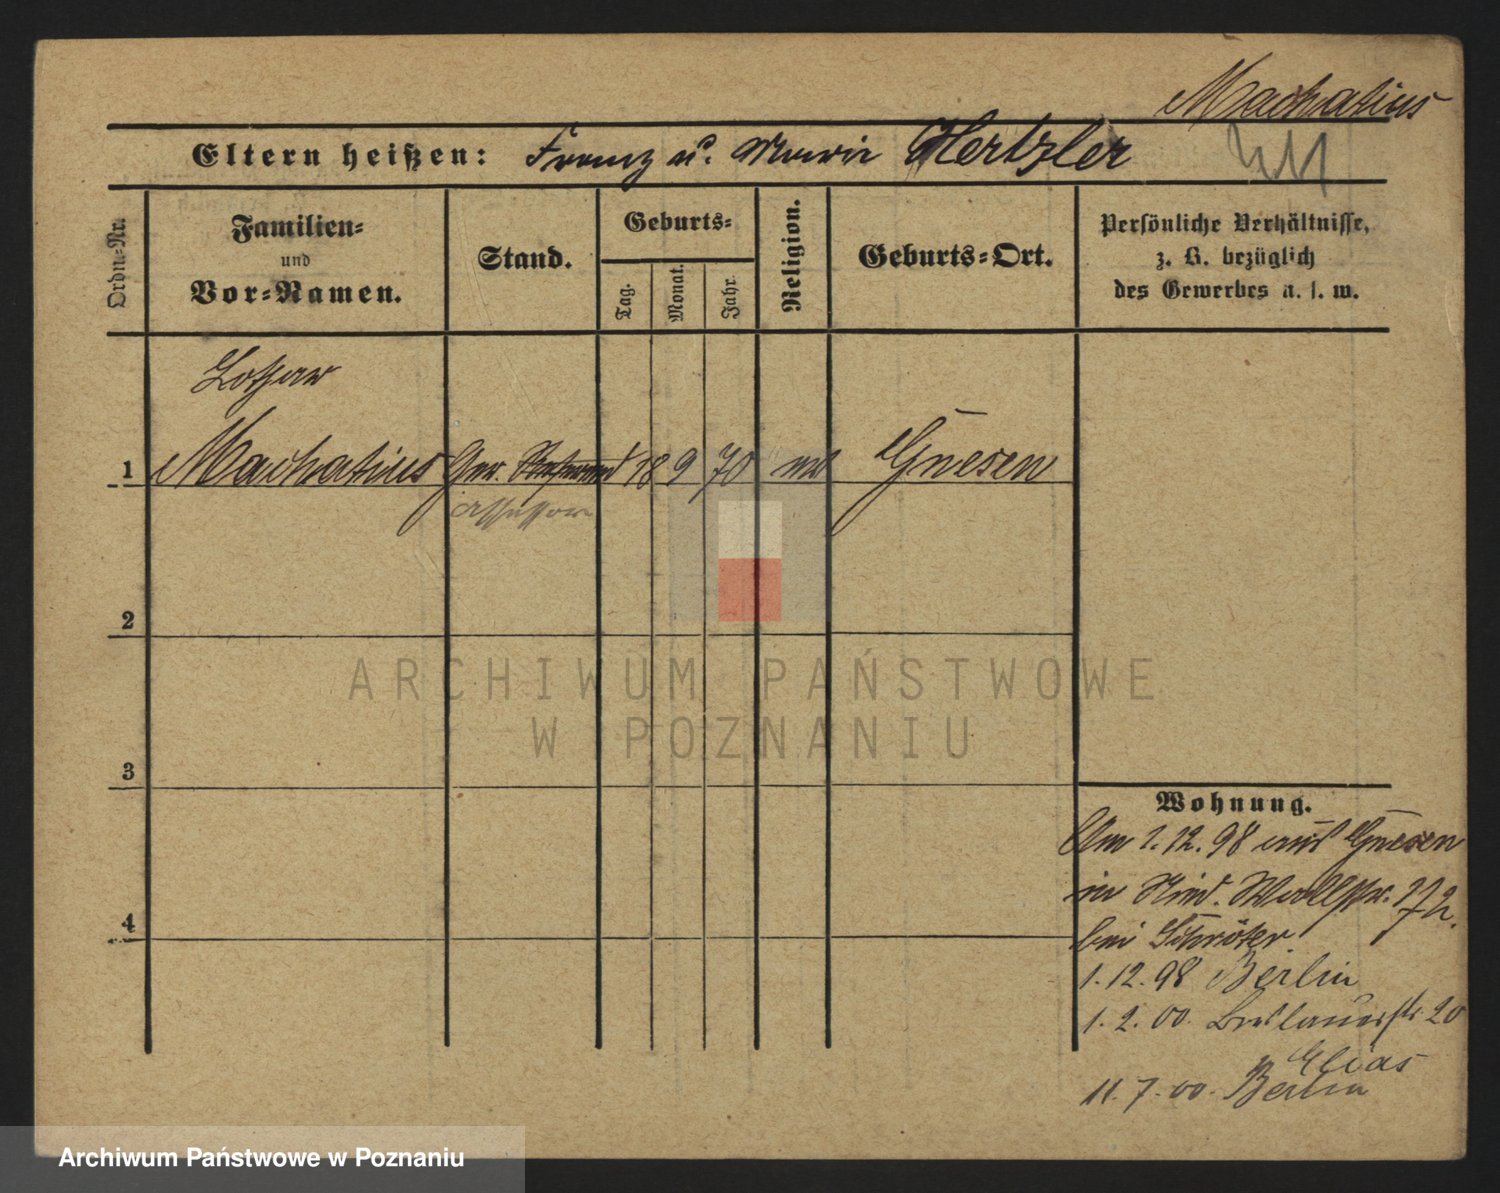 Machatius
Eltern heißen: Franz u. Marie Hertzler
Ordn.-Nr.
Familien-
und
Vor-Namen.
Stand.
Geburts-
Tag.
Monat.
Jahr.
Religion.
Geburts-Ort.
Persönliche Verhältnisse,
z. B. bezüglich
des Gewerbes u. s. w.
Lothar
1 Machatius Ger. Referend 18 9 70 ev Gnesen
Assessor
2
3
4
Wohnung.
Am 1.12.98 aus Gnesen
in Wallstr.
bei Schröter
1.12.98 Berlin
1.2.00. Breslauerstr 20
Elias
11.7.00. Berlin
ARCHIWUM PAŃSTWOWE
W POZNANIU
Archiwum Państwowe w Poznaniu